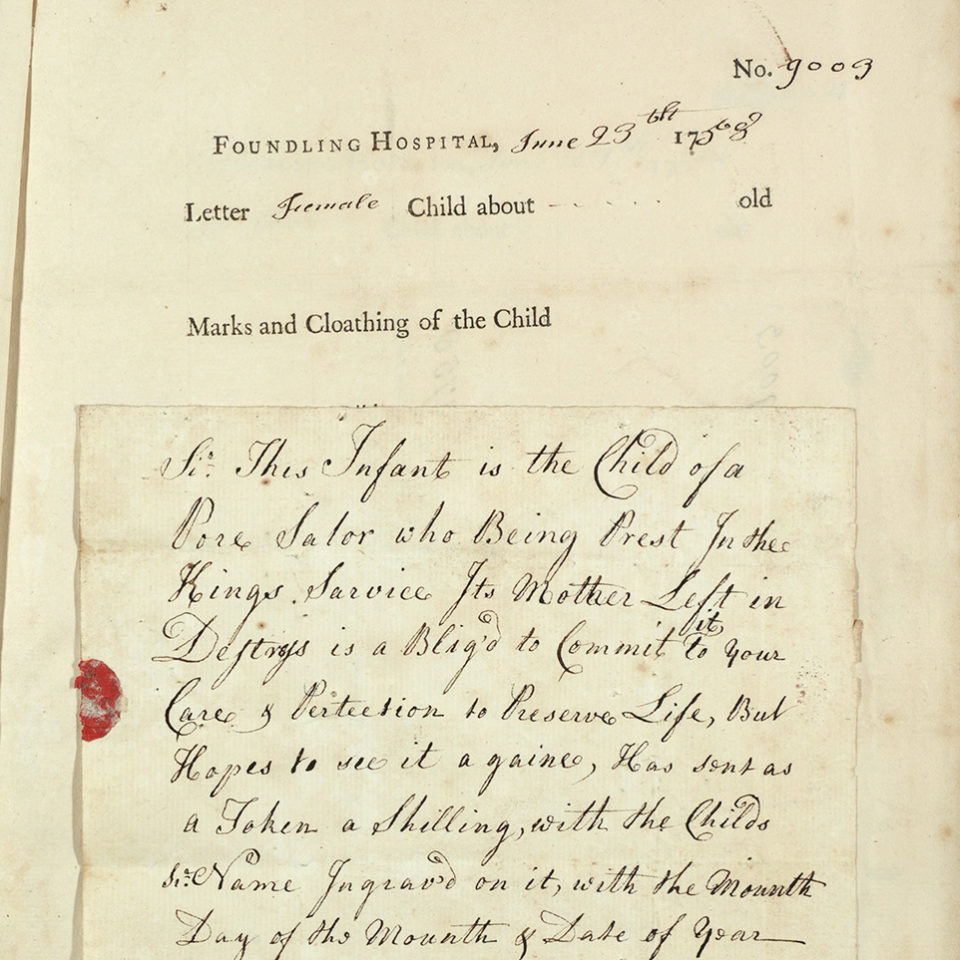 No. 9003
FOUNDLING HOSPITAL, June 23th 1758
Letter Female Child about - - - - - old
Marks and Cloathing of the Child
Sr. This Infant is the Child of a
Pore Salor who Being Prest In the
Kings Sarvice Its Mother Left in
Destrys is a Blig'd to Commit it To Your
Care & Pertection to Preserve Life, But
Hopes to see it a gaine, Has sent as
a Token a Shilling, with the Childs
sr. Name Ingrav'd on it, with the Mounth
Day of the Mounth & Date of Year